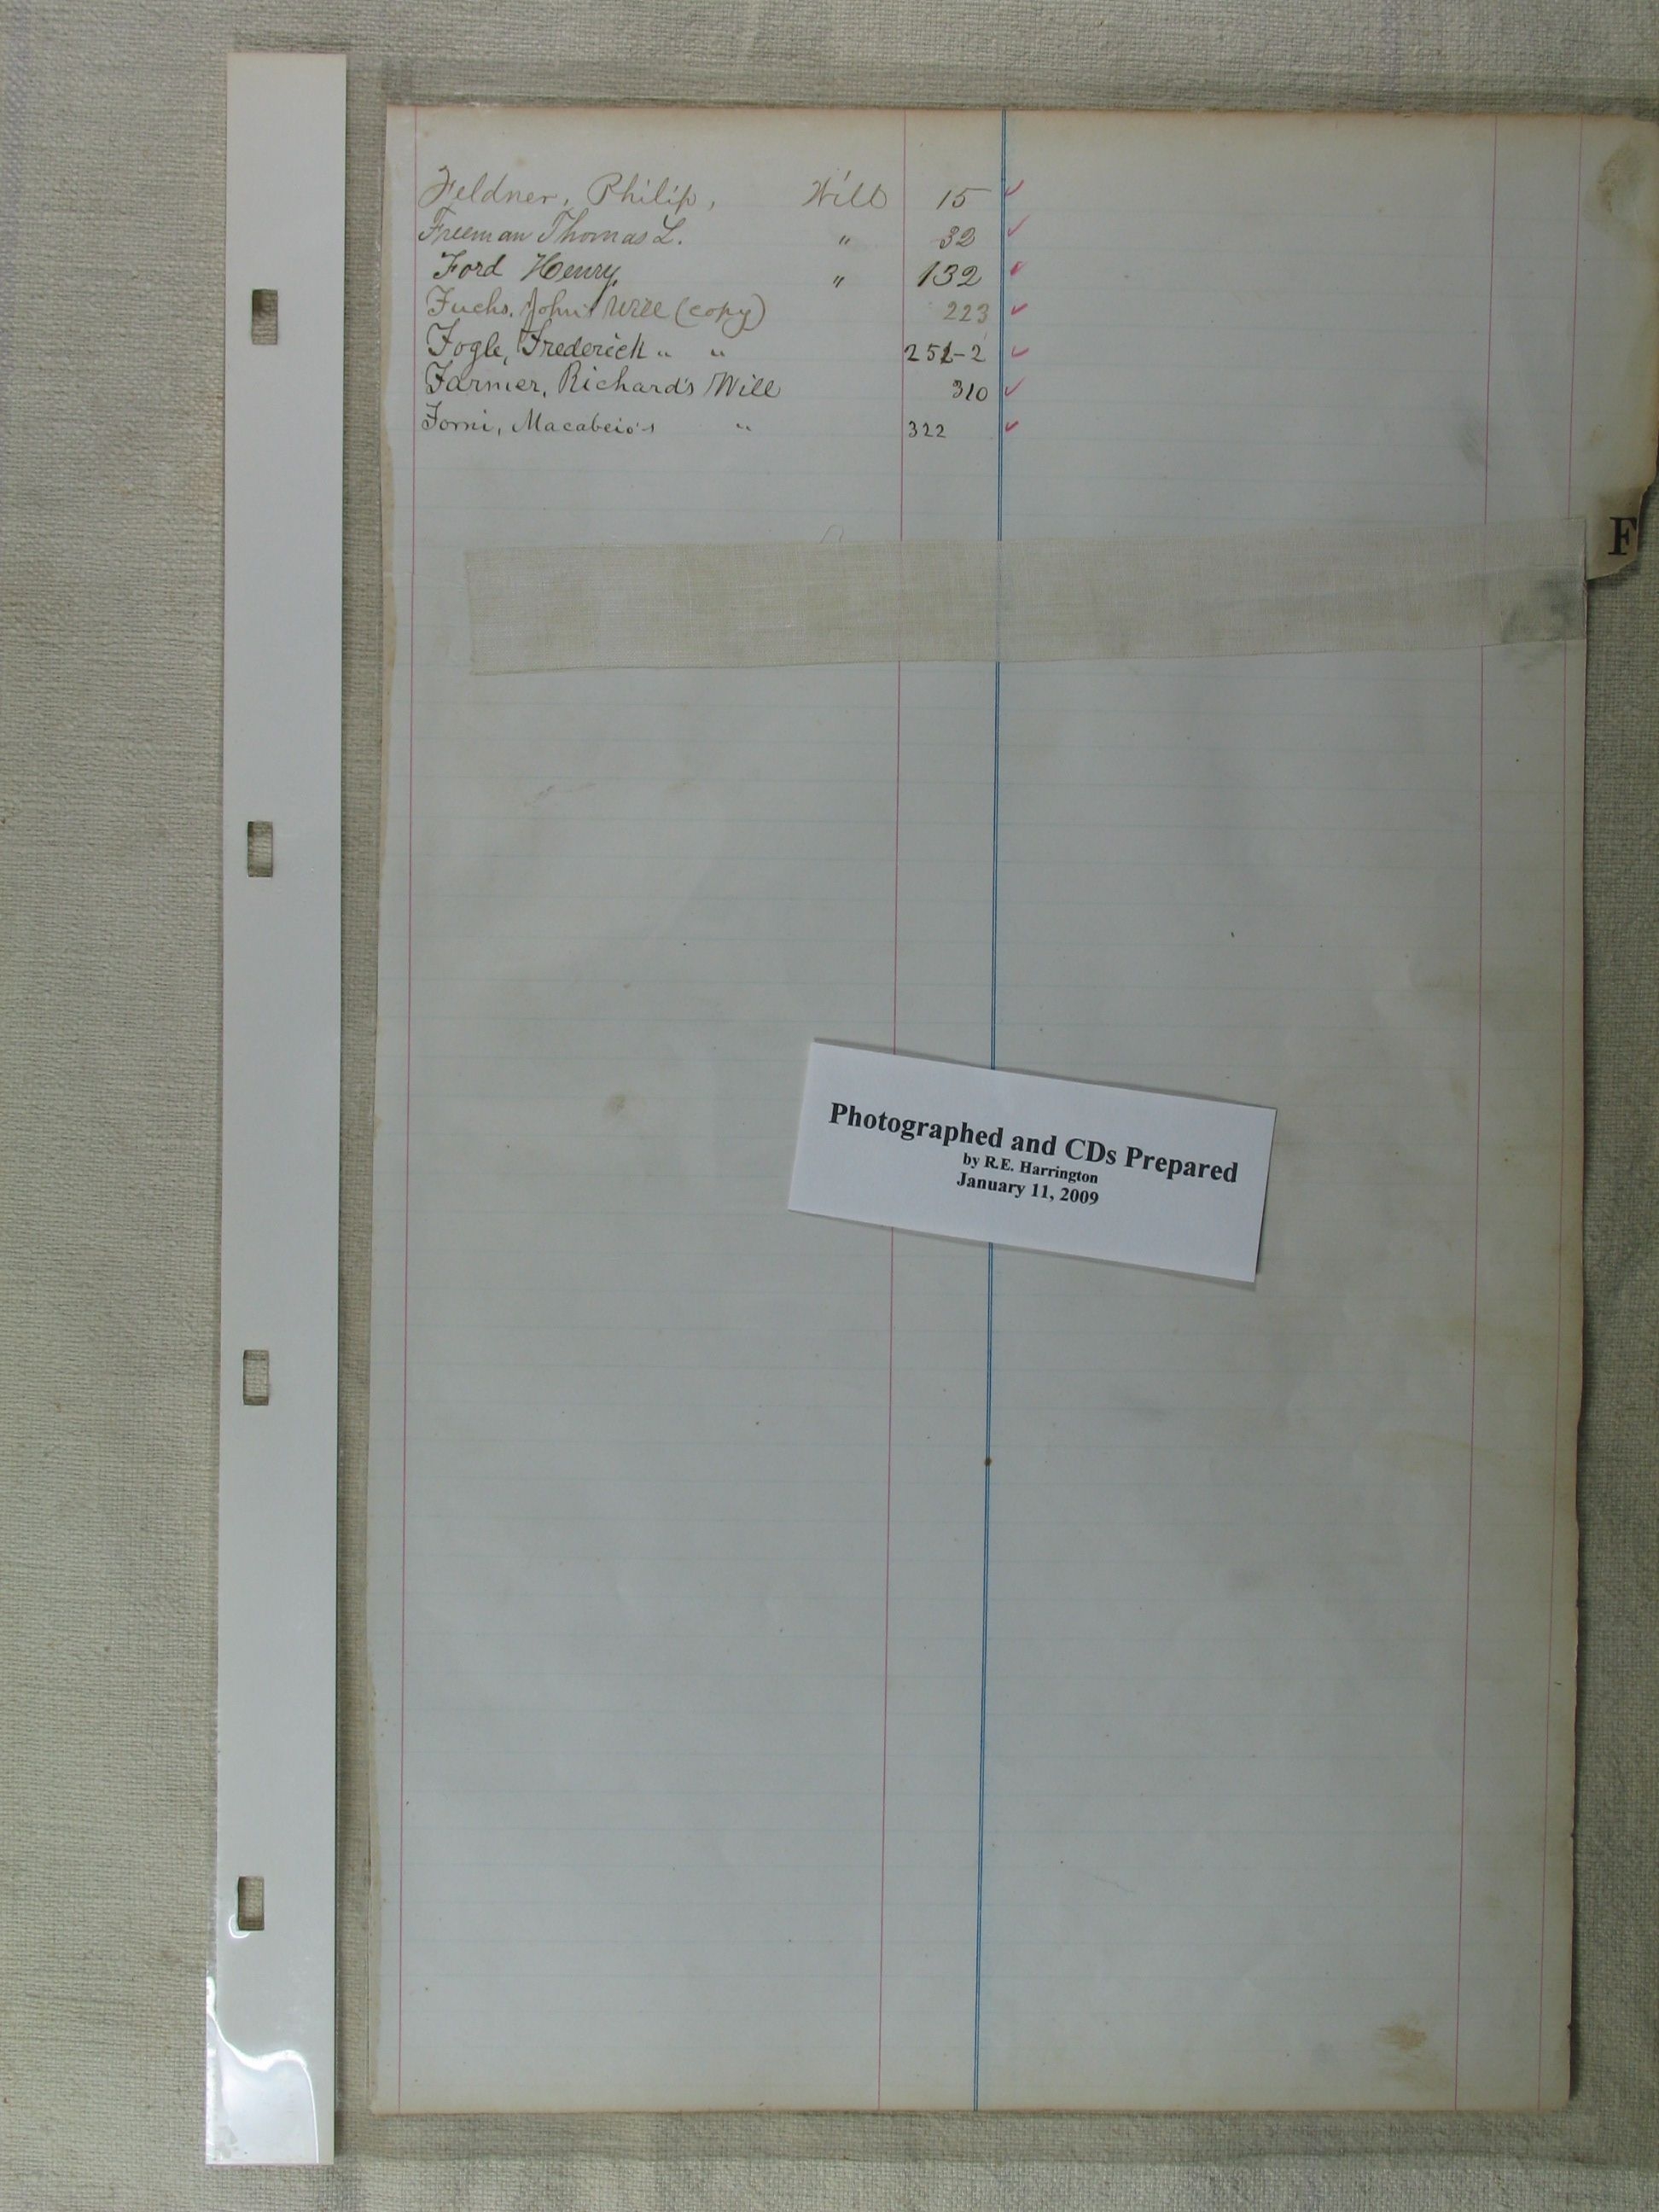 Feldner, Philip, Will 15
Freeman Thomas L. " 32
Ford Henry " 132
Fuchs, John Will (copy) 223
Fogle, Frederick " " 251-2
Farmer, Richard's Will 310
Forni, Macabeio's " 322
F
Photographed and CDs Prepared
by R.E. Harrington
January 11, 2009